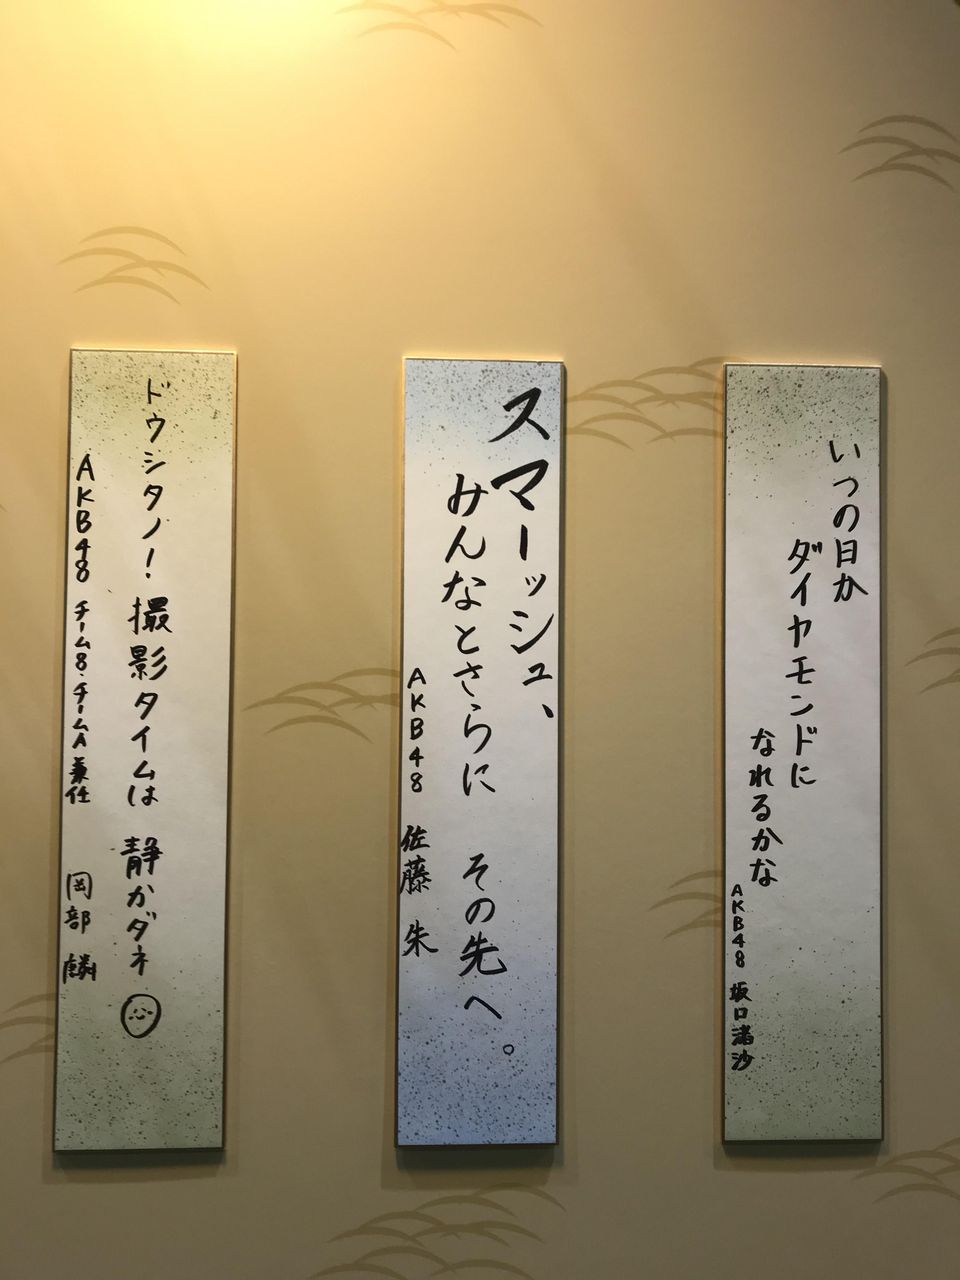 いつの日か
ダイヤモンドに
なれるかな
AKB48 坂口渚沙
スマーッシュ、
みんなとさらに その先へ。
AKB48 佐藤 朱
ドウシタノ! 撮影タイムは 静かダネ
AKB48 チーム8・チームA兼任 岡部 麟